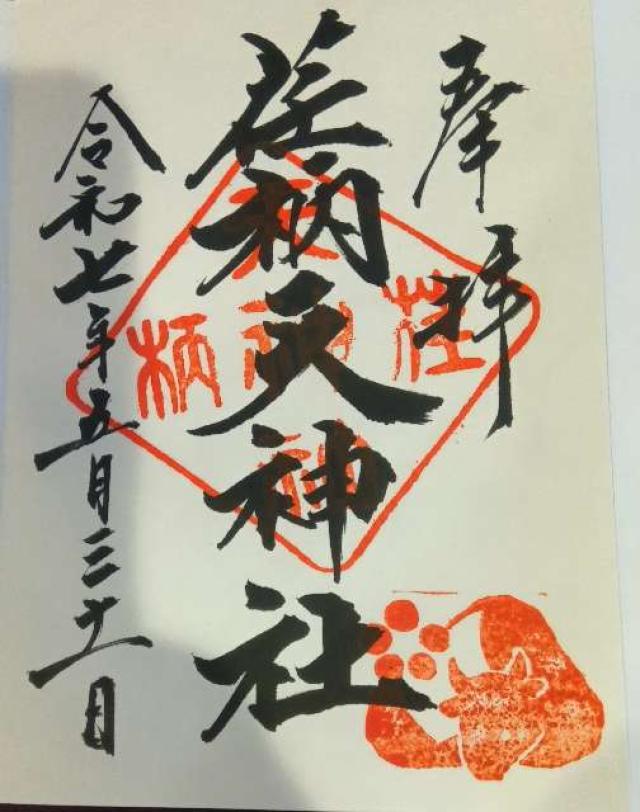 奉拝
荏柄天神社
令和七年五月三十一日
荏
柄